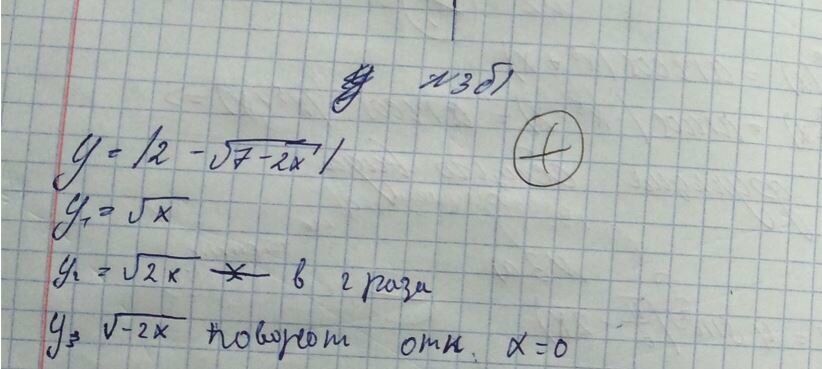 №3б)
y = |2 - √(7-2x)|
y₁ = √x
y₂ = √2x в 2 раза
y₃ √-2x поворот отн. x=0